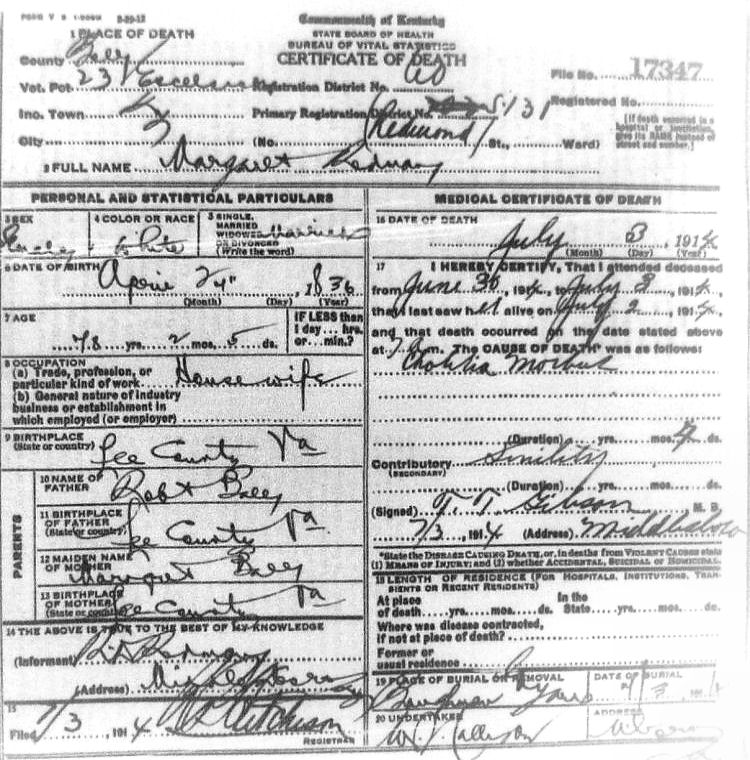 FORM V S 1-200M 2-20-12
Commonwealth of Kentucky
STATE BOARD OF HEALTH
BUREAU OF VITAL STATISTICS
CERTIFICATE OF DEATH
1 PLACE OF DEATH
County Bell
Vot. Pct 23 Excelsior
Ino. Town
City
Registration District No. 60
Primary Registration District No. 5131
(No. Redmond St., Ward)
File No. 17347
Registered No.
[If death occurred in a hospital or institution, give its NAME instead of street and number.]
2 FULL NAME Margaret
PERSONAL AND STATISTICAL PARTICULARS
3 SEX
Female
4 COLOR OR RACE
White
5 SINGLE, MARRIED WIDOWED OR DIVORCED (Write the word) Married
6 DATE OF BIRTH April 24" 1836
(Month) (Day) (Year)
7 AGE
78 yrs. 2 mos. 5 ds.
IF LESS than 1 day... hrs. or... min.?
8 OCCUPATION
(a) Trade, profession, or particular kind of work House wife
(b) General nature of industry business or establishment in which employed (or employer)
9 BIRTHPLACE (State or country) Lee County Va
PARENTS
10 NAME OF FATHER Robt
11 BIRTHPLACE OF FATHER (State or country) Lee County Va
12 MAIDEN NAME OF MOTHER Margret
13 BIRTHPLACE OF MOTHER (State or country) Lee County Va
14 THE ABOVE IS TRUE TO THE BEST OF MY KNOWLEDGE
(Informant)
(Address)
15
Filed 7/3, 1914
REGISTRAR
MEDICAL CERTIFICATE OF DEATH
16 DATE OF DEATH
July 3, 1914
(Month) (Day) (Year)
17 I HEREBY CERTIFY, That I attended deceased
from June 30, 1914, to July 3, 1914,
that I last saw her alive on July 2, 1914,
and that death occurred on the date stated above
at 7 a m. The CAUSE OF DEATH* was as follows:
Cholera Morbus
(Duration) yrs. mos. ds.
Contributory Senility
(SECONDARY)
(Duration) yrs. mos. ds.
(Signed) T. T. Gibson M. D.
7/3, 1914 (Address) Middlesboro
*State the DISEASE CAUSING DEATH, or, in deaths from VIOLENT CAUSES state
(1) MEANS OF INJURY; and (2) whether ACCIDENTAL, SUICIDAL OR HOMICIDAL.
18 LENGTH OF RESIDENCE (FOR HOSPITALS, INSTITUTIONS, TRANSIENTS OR RECENT RESIDENTS)
At place of death yrs. mos. ds. In the State yrs. mos. ds.
Where was disease contracted, if not at place of death?
Former or usual residence
19 PLACE OF BURIAL OR REMOVAL
DATE OF BURIAL
7/3, 1914
20 UNDERTAKER
ADDRESS